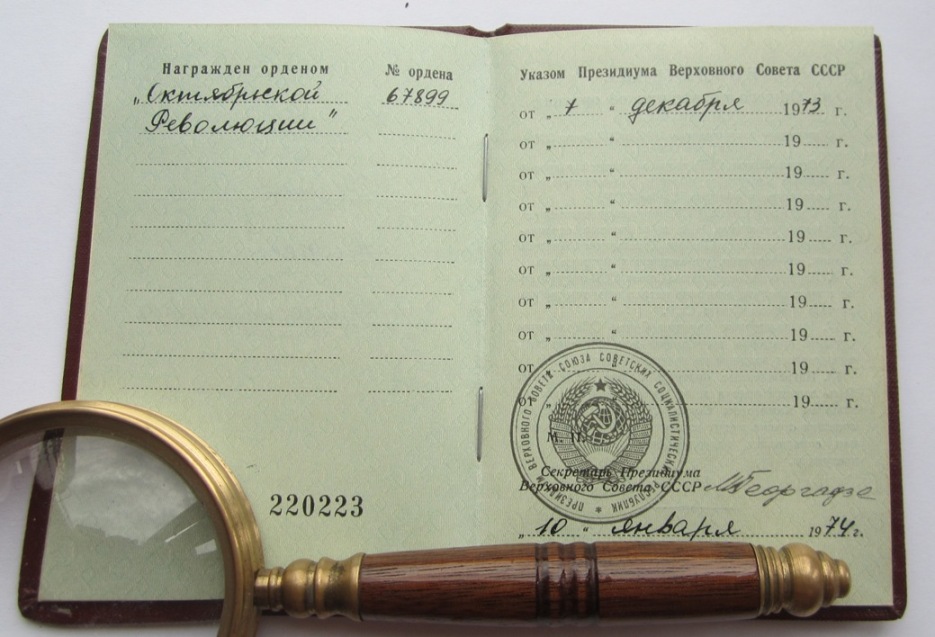 Награжден орденом
№ ордена
„Октябрьской
67899
Революции"
220223
Указом Президиума Верховного Совета СССР
от „ 7 “ декабря 1973 г.
от „ “ 19 г.
от „ “ 19 г.
от „ “ 19 г.
от „ “ 19 г.
от „ “ 19 г.
от „ “ 19 г.
от „ “ 19 г.
от „ “ 19 г.
от „ 19 г.
ПРЕЗИДИУМ ВЕРХОВНОГО СОВЕТА СОЮЗА СОВЕТСКИХ СОЦИАЛИСТИЧЕСКИХ РЕСПУБЛИК
М. П.
Секретарь Президиума
Верховного Совета СССР МГеоргадзе
„ 10 “ января 1974 г.